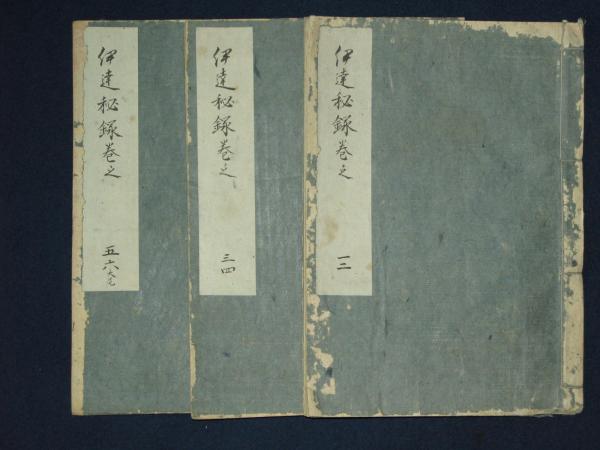 伊達秘録巻之
一二
伊達秘録巻之
三四
伊達秘録巻之
五六大尾